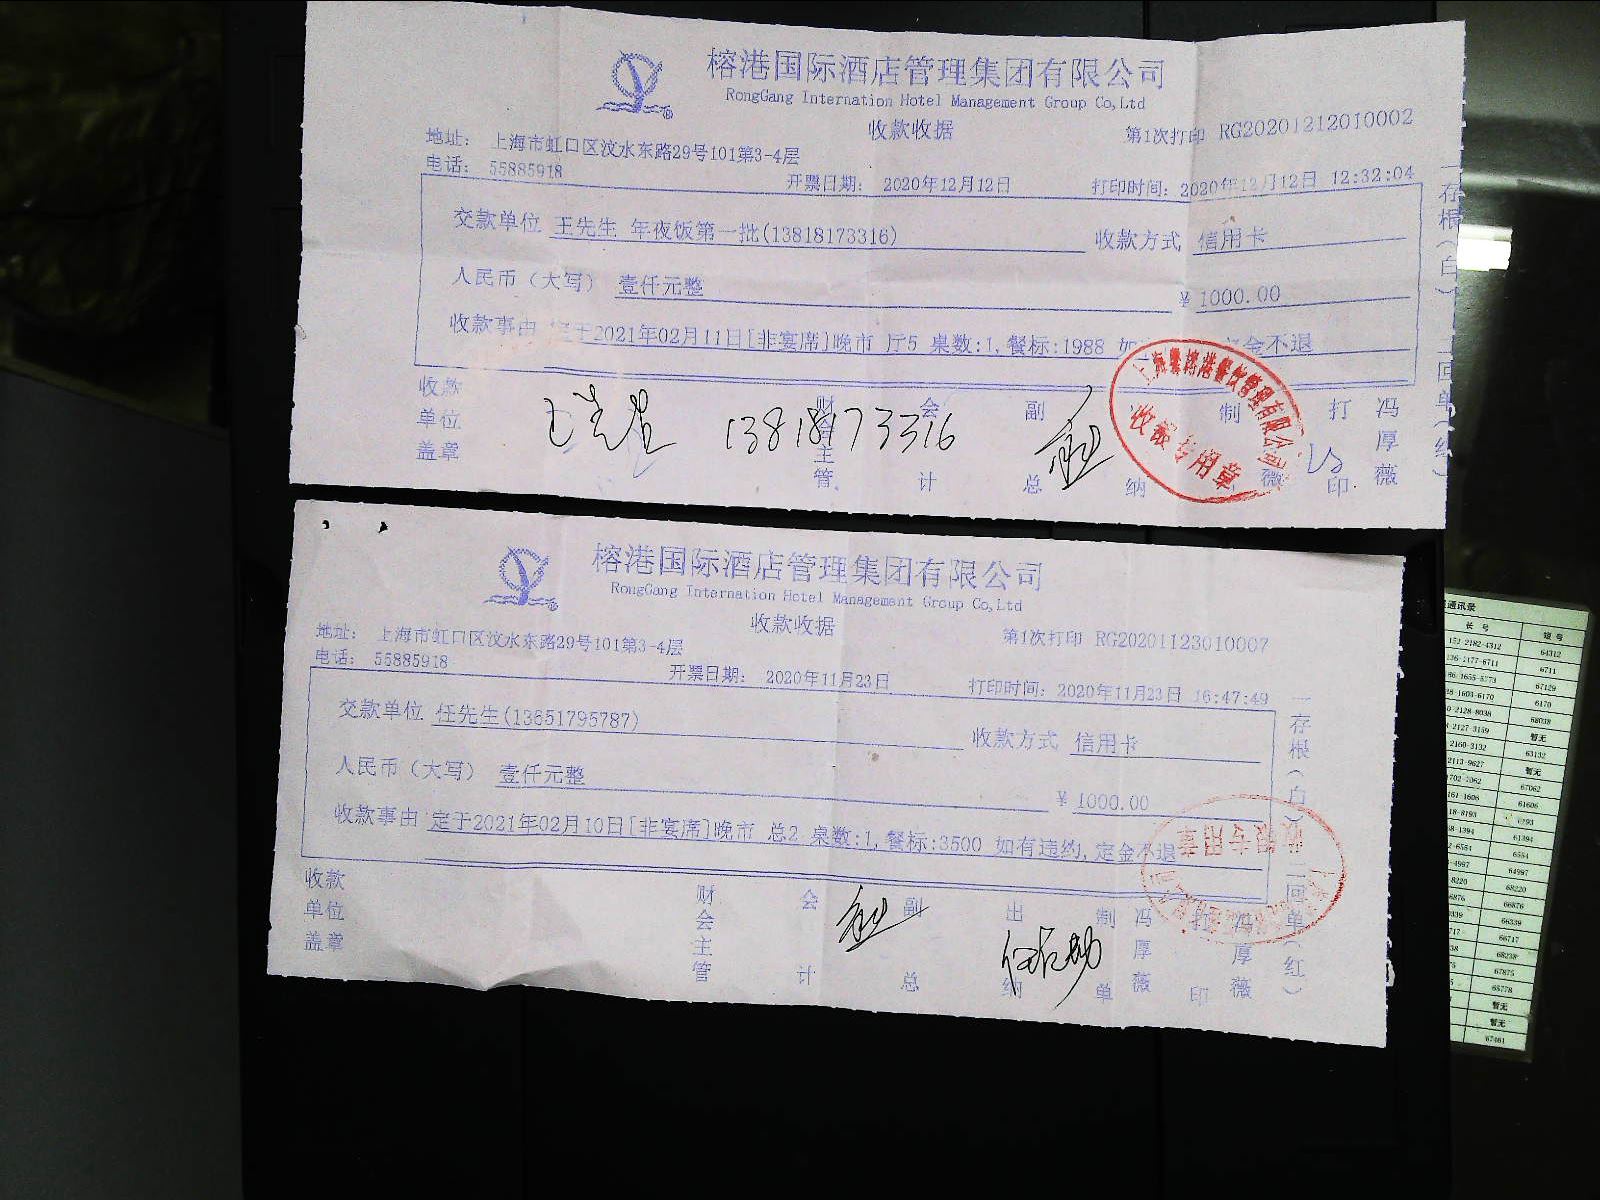 榕港国际酒店管理集团有限公司
RongGang Internation Hotel Management Group Co,Ltd
收款收据
第1次打印 RG20201212010002
地址： 上海市虹口区汶水东路29号101第3-4层
电话： 55885918
开票日期： 2020年12月12日
打印时间： 2020年12月12日 12:32:04
交款单位 王先生 年夜饭第一批(13818173316)
收款方式 信用卡
人民币（大写） 壹仟元整
¥ 1000.00
收款事由 定于2021年02月11日[非宴席]晚市 厅5 桌数:1,餐标:1988 如 金不退
一存根(白)二回单(红)
收款单位盖章
王先生 13818173316
财会主管
会计
副总
纳
制
薇
打印
冯厚薇
上海馨榕港餐饮管理有限公司
收银专用章
榕港国际酒店管理集团有限公司
RongGang Internation Hotel Management Group Co,Ltd
收款收据
第1次打印 RG20201123010007
地址： 上海市虹口区汶水东路29号101第3-4层
电话： 55885918
开票日期： 2020年11月23日
打印时间： 2020年11月23日 16:47:49
交款单位 任先生(13651795787)
收款方式 信用卡
人民币（大写） 壹仟元整
¥ 1000.00
收款事由 定于2021年02月10日[非宴席]晚市 总2 桌数:1,餐标:3500 如有违约,定金不退
一存根(白)二回单(红)
收款单位盖章
财会主管
会计
副总
出纳
制单
冯厚薇
打印
冯厚薇
收银专用章
通讯录
长 号 短 号
152-2182-4312 64312
136-1177-6711 6711
67129
6170
68038
暂无
63132
暂无
67062
61606
61394
6554
64997
68220
66876
66339
66717
68238
67875
65778
暂无
暂无
67461